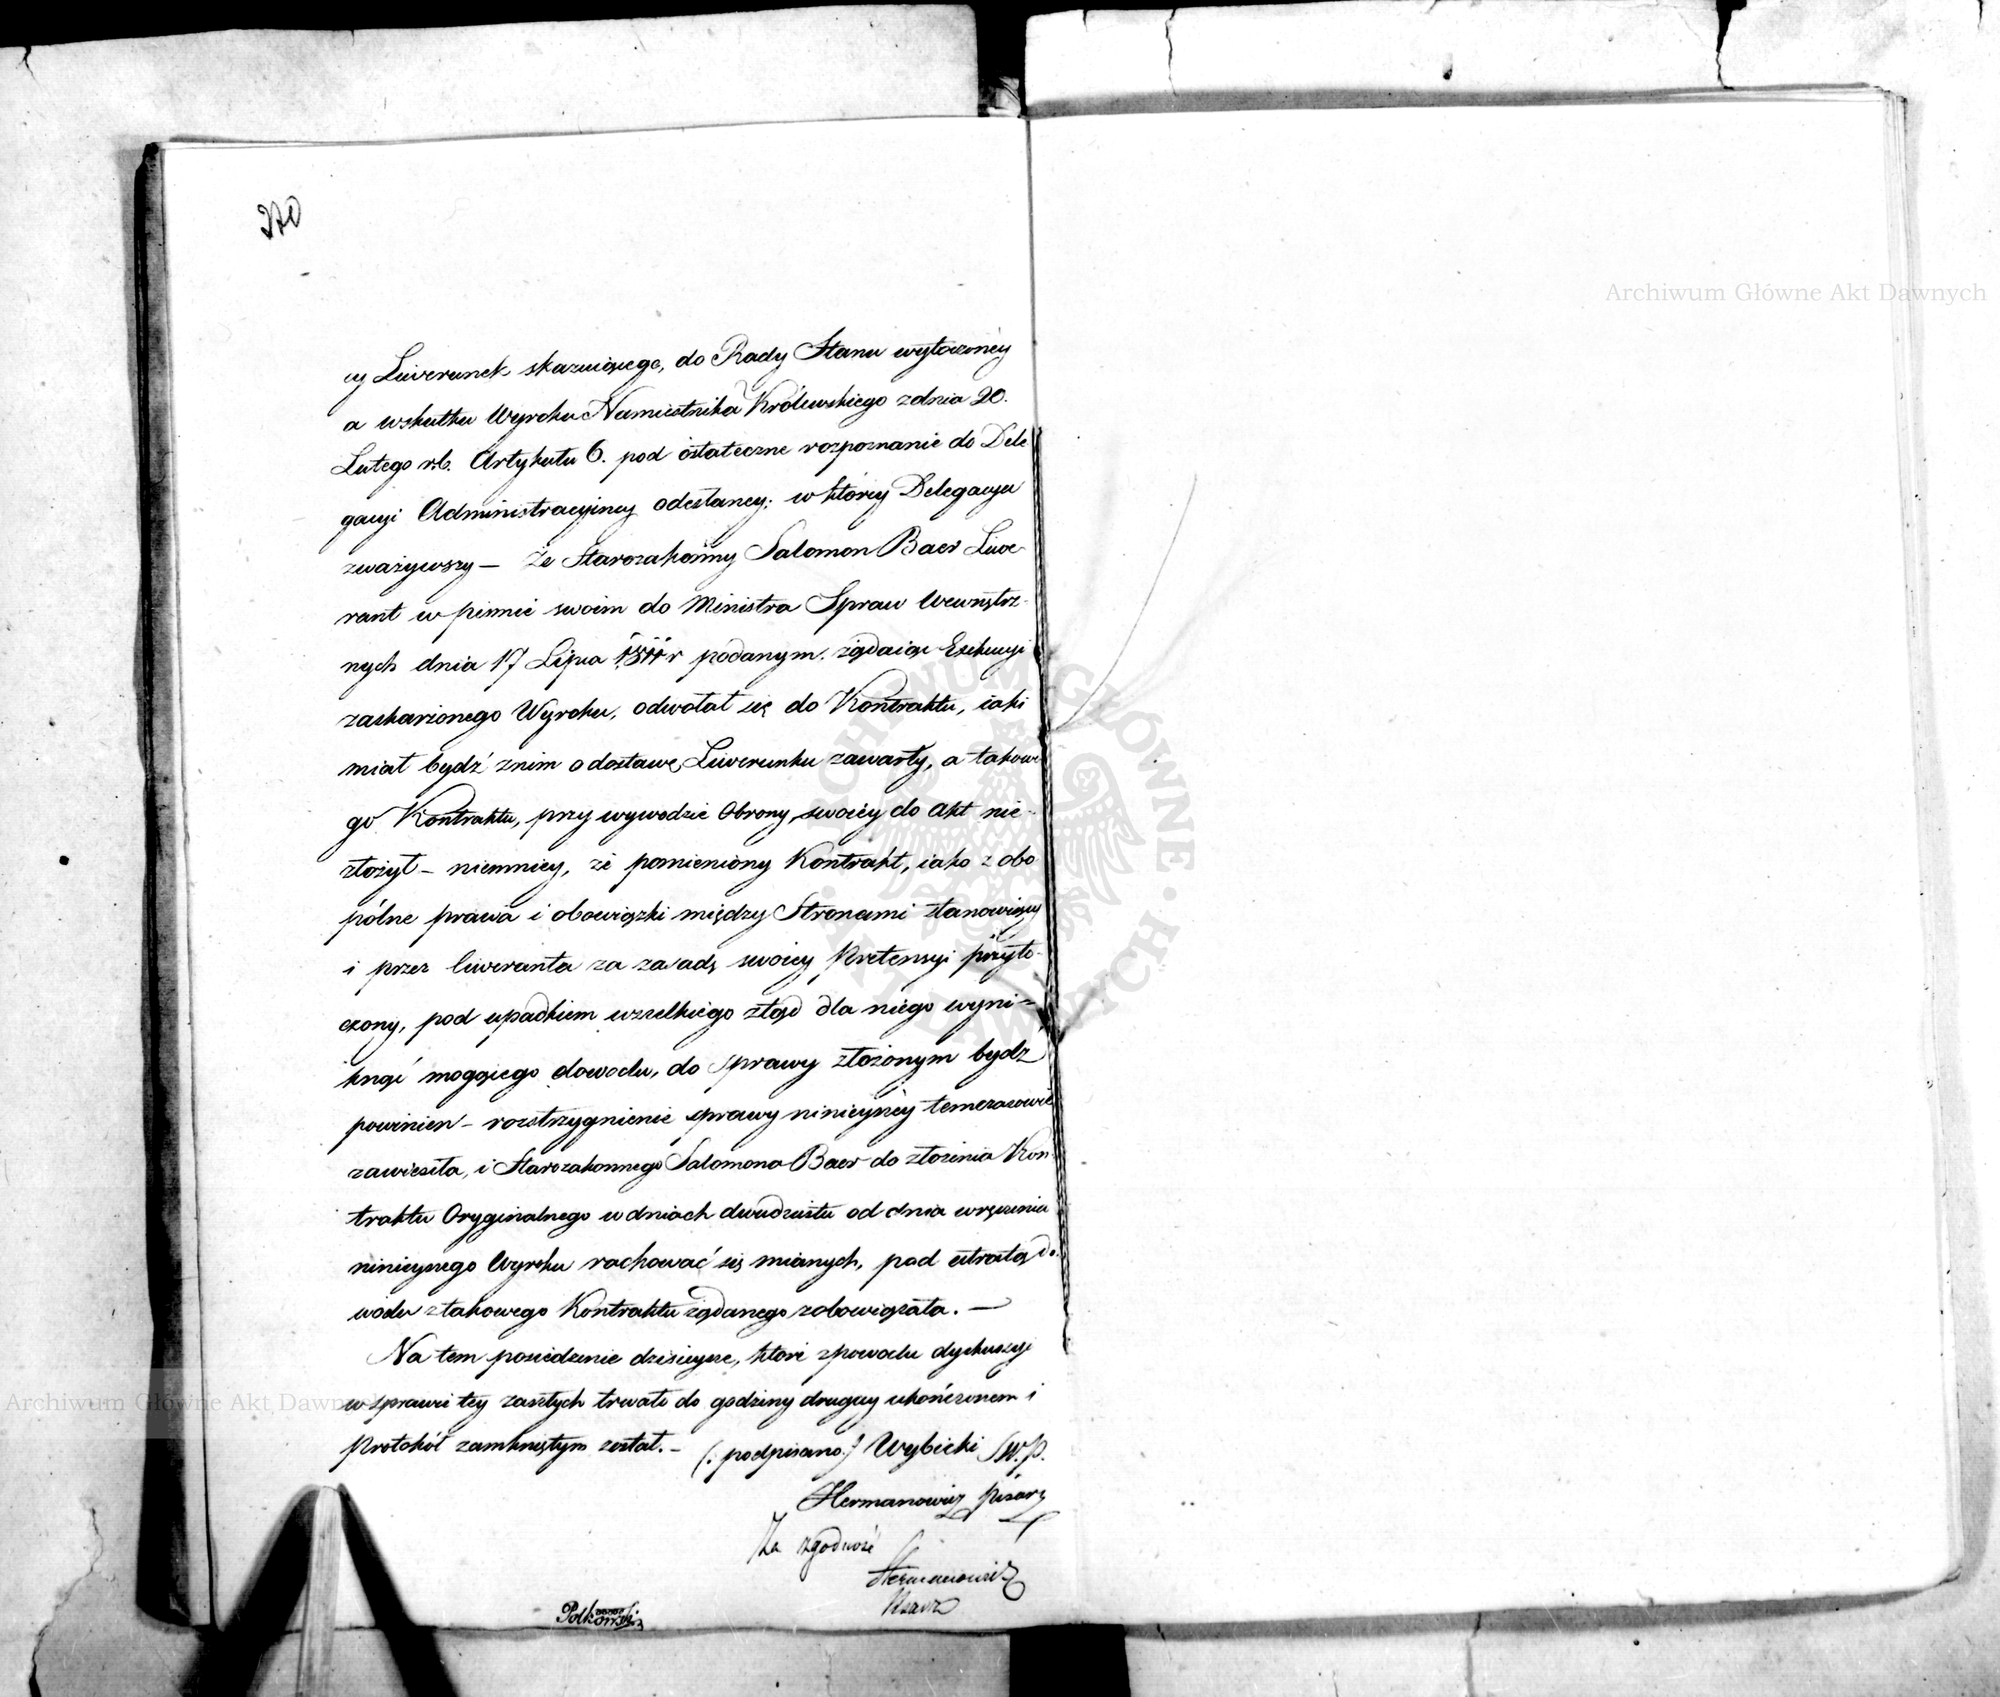 370
cy Liwerunek skazuiącego, do Rady Stanu wytoczonéy
a wskutku Wyroku Namiestnika Królewskiego z dnia 20.
Lutego r.b. Artykułu 6. pod ostateczne rozpoznanie do Dele
gacyi Administracyiney odesłaney; w któréy Delegacya
zważywszy – Że Starozakonny Salomon Baer Liwe-
rant w piśmie swoim do Ministra Spraw Wewnętrz-
nych dnia 17 Lipca 1811 r podanym. żądaiąc Exekucyi
zaskarżonego Wyroku, odwołał się do Kontraktu, iaki
miał bydź z nim o dostawę Liwerunku zawarty, a takowe
go Kontraktu, przy wywodzie Obrony swoiéy do Akt nie-
złożył – niemniey, że pomieniony Kontrakt, iako z obo
pólne prawa i obowiązki między Stronami stanowiący
i przez liweranta za zasadę swoiey Pretensyi przyto-
czony, pod upadkiem wszelkiego ztąd dla niego wyni-
knąć mogącego dowodu, do sprawy złożonym bydź
powinien – rozstrzygnienie sprawy ninieyszéy temczasowie
zawiesiła, i Starozakonnego Salomona Baer do złożenia Kon-
traktu Oryginalnego w dniach dwudziestu od dnia wręczenia
ninieyszego Wyroku rachować się mianych, pod utratą do-
wodu z takowego Kontraktu żądanego zobowiązała. —
Na tem posiedzenie dzisieysze, które z powodu dyskussyi
w sprawie tey zaszłych trwało do godziny drugiey ukończonem i
Protokół zamkniętym został. – (: podpisano :) Wybicki S.W.P.
Hermanowicz Pisarz
Za zgodność
Hermanowicz
Pisarz
Polkowski
Archiwum Główne Akt Dawnych
Archiwum Główne Akt Dawnych
ARCHIWUM GŁÓWNE AKT DAWNYCH